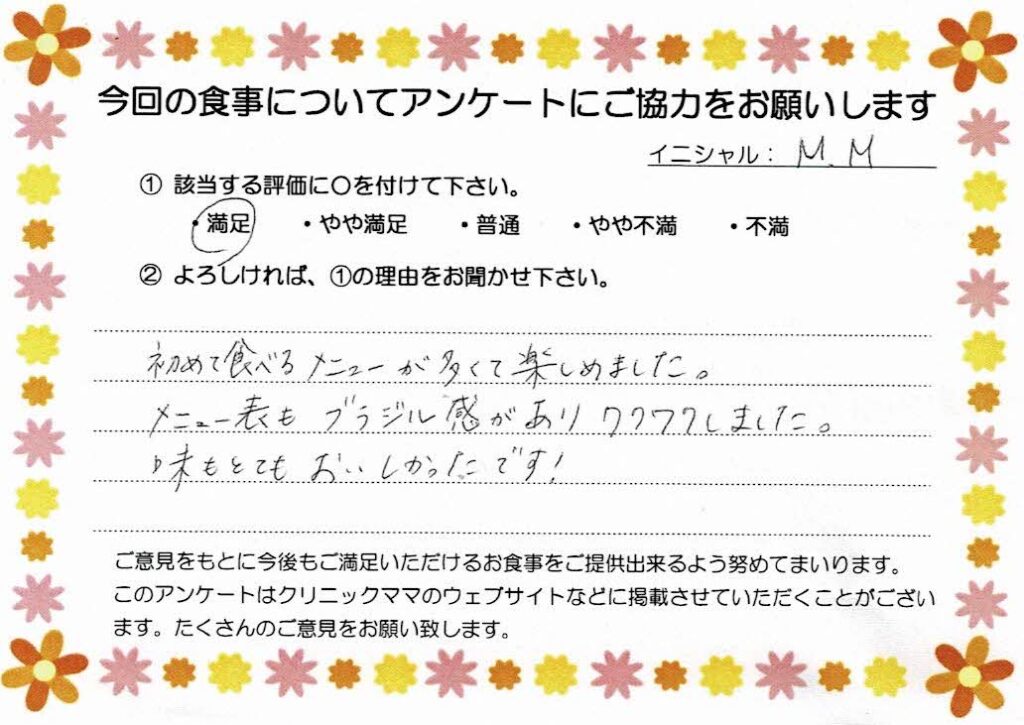 今回の食事についてアンケートにご協力をお願いします
イニシャル： M.M
① 該当する評価に〇を付けて下さい。
・満足 ・やや満足 ・普通 ・やや不満 ・不満
② よろしければ、①の理由をお聞かせ下さい。
初めて食べるメニューが多くて楽しめました。
メニュー表もブラジル感がありワクワクしました。
味もとてもおいしかったです!
ご意見をもとに今後もご満足いただけるお食事をご提供出来るよう努めてまいります。
このアンケートはクリニックママのウェブサイトなどに掲載させていただくことがござい
ます。たくさんのご意見をお願い致します。